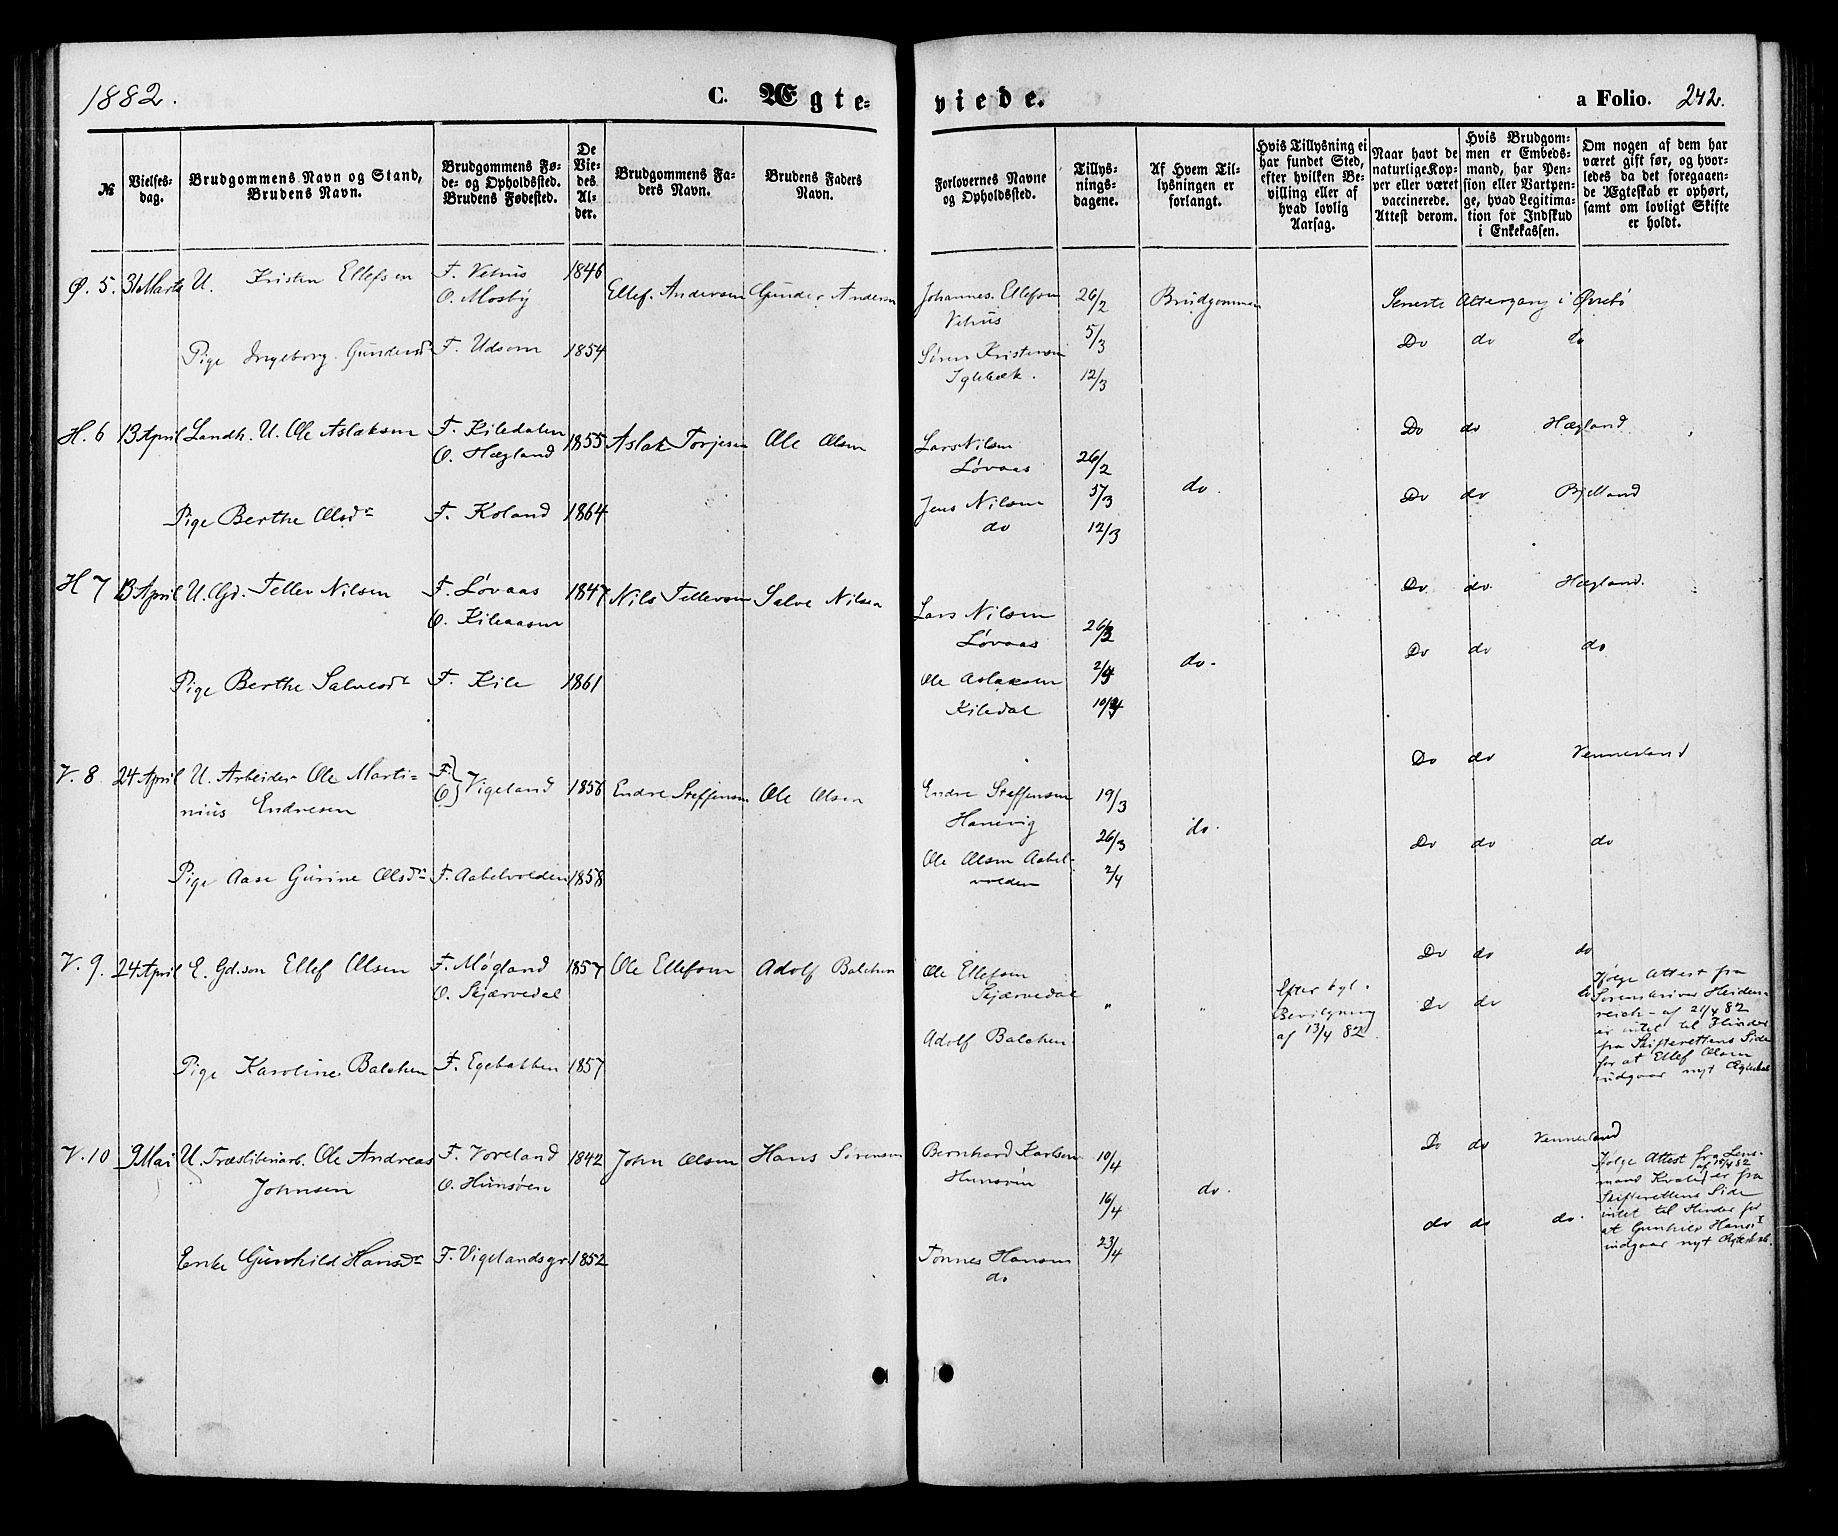 1882.
C. Ægte-
viede.
a Folio. 242.
№
Vielses-
dag.
Brudgommens Navn og Stand,
Brudens Navn.
Brudgommens Fø-
de- og Opholdssted.
Brudens Fødested.
De
Vie-
des
Al-
der.
Brudgommens Fa-
ders Navn.
Brudens Faders
Navn.
Forlovernes Navne
og Opholdssted.
Tillys-
nings-
dagene.
Af Hvem Til-
lysningen er
forlangt.
Hvis Tillysning ei
har fundet Sted,
efter hvilken Be-
villing eller af
hvad lovlig
Aarsag.
Naar havt de
naturlige Kop-
per eller været
vaccinerede.
Attest derom.
Hvis Brudgom-
men er Embeds-
mand, har Pen-
sion eller Vartpen-
ge, hvad Legitima-
tion for Indskud
i Enkekassen.
Om nogen af dem har
været gift før, og hvor-
ledes da det foregaaen-
de Ægteskab er ophørt,
samt om lovligt Skifte
er holdt.
Ø. 5. 31 Marts U. Kristen Ellefsen F. Vehus 1846 Ellef Andersen Gunder Andersen
O. Mosby
Pige Ingeborg Gundersd. F. Udsom 1854
Johannes Ellefsen 26/2 Brudgommen Seneste Altergang i Øvrebø
Vehus 5/3
Søren Kristensen Do do do
Iglebæk. 12/3
H. 6 13 April Landh. U. Ole Aslaksen F. Kiledalen 1855 Aslak Torjesen Ole Olsen
O. Hægland
Pige Berthe Olsdr F. Koland 1864
Lars Nilsen 26/2 Do do Hægland
Løvaas
Jens Nilsen 5/3 do. Do do Bjelland
do 12/3
H 7 13 April U. Gd. Tellev Nilsen F. Løvaas 1847 Nils Tellevsen Salve Nilsen
O. Kileaasen
Pige Berthe Salvesdr F. Kile 1861
Lars Nilsen Do do Hægland.
Løvaas
Ole Aslaksen 2/4 do. Do do do
Kiledal
V. 8 24 April U. Arbeider Ole Marti- F. O. } Vigeland 1856 Endre Steffensen Ole Olsen
nius Endresen
Pige Aase Gurine Olsdr F. Aabelvolden 1858
Endre Steffensen 19/3 Do do Vennesland
Hanevig
26/3 do.
Ole Olsen Aabel- Do do do
volden 2/4
V. 9. 24 April E. Gd.søn Ellef Olsen F. Møgland 1857 Ole Ellefsen Adolf Balchen
O. Skjærvedal
Pige Karoline Balchen F. Egebakken 1857
Ole Ellefsen Do do do
Skjærvedal " " Efter kgl.
Bevilgning
af 13/4 82.
Adolf Balchen Do do do
Ifølge Attest fra
Sorenskriver Heiden-
reich af 21/4 82
er intet til Hinder
fra Skifterettens Side
for at Ellef Olsen
indgaar nyt Ægteskab
V. 10 9 Mai U. Træsliberiarb. Ole Andreas F. Voreland 1842 John Olsen Hans Sørensen
Johnsen O. Hunsøen
Enke Gunhild Hansdr F. Vigelandsgr. 1852
Bernhard Karlsen 10/4 Do do Vennesland
Hunsøen
16/4 do. do do do.
Tønnes Hansen 23/4
do
Ifølge Attest fra Lens-
mand Kvale af 15/4 82 er fra
Skifterettens Side
intet til Hinder for
at Gunhild Hansdr
indgaar nyt Ægteskab.